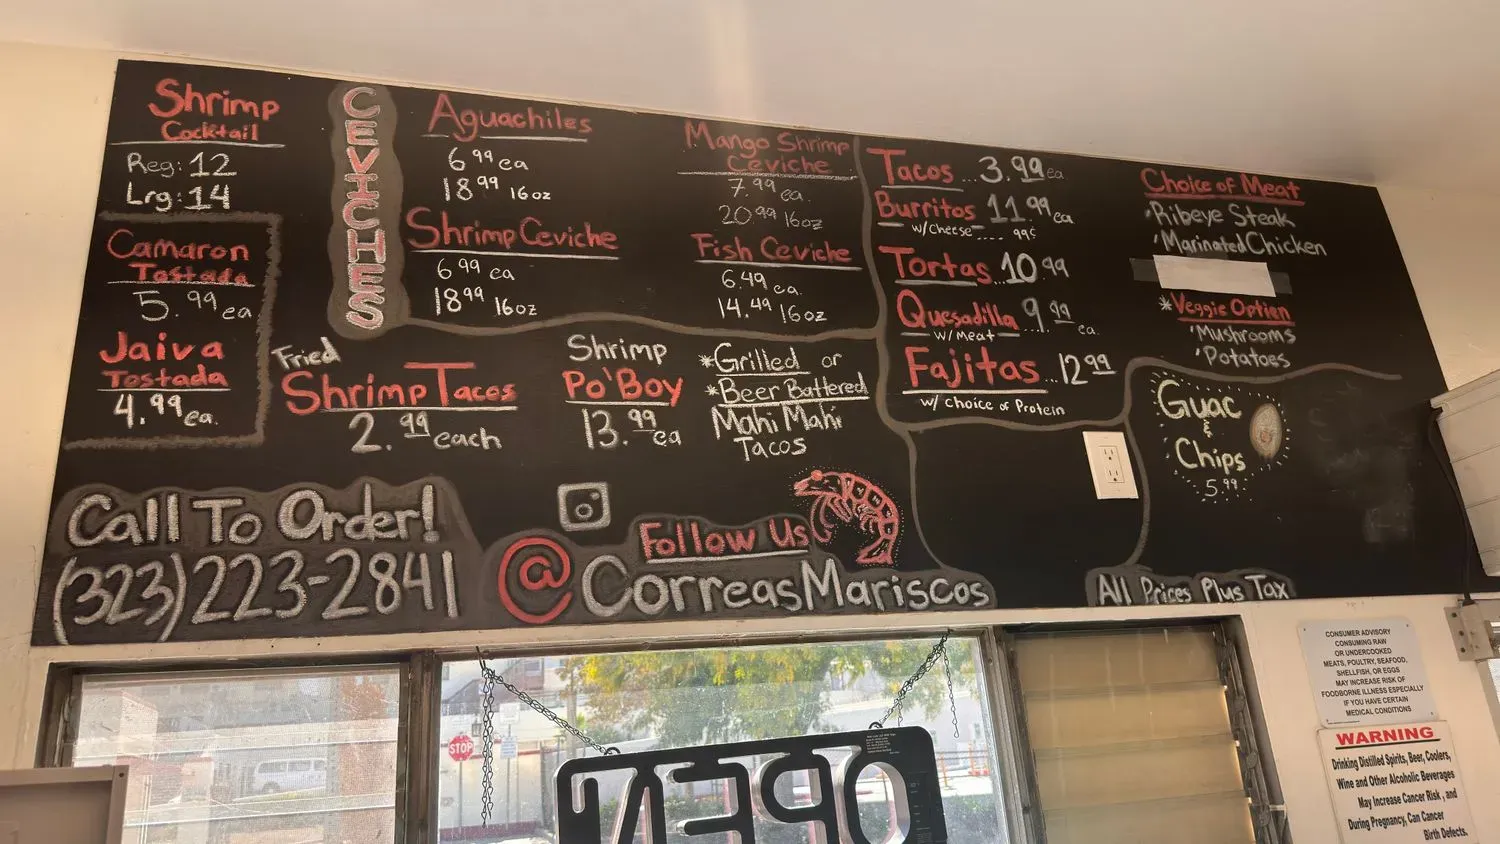 Shrimp
Cocktail
Reg: 12
Lrg: 14
Camaron
Tostada
5.99 ea
Jaiva
Tostada
4.99 ea.
CEVICHES
Aguachiles
6 99 ea
18 99 16oz
Shrimp Ceviche
6 99 ea
18 99 16oz
Mango Shrimp
Ceviche
7.99 ea.
20.99 16oz
Fish Ceviche
6.49 ea.
14.49 16oz
Fried
Shrimp Tacos
2.99 each
Shrimp
Po'Boy
13.99 ea
*Grilled or
*Beer Battered
Mahi Mahi
Tacos
Tacos...3.99 ea.
Burritos 11.99 ea
w/cheese.... 99¢
Tortas..10 99
Quesadilla 9 99 ea.
w/meat
Fajitas...12 99
w/ choice of Protein
Choice of Meat
'Ribeye Steak
'Marinated Chicken
*Veggie Option
'Mushrooms
'Potatoes
Guac
Chips
5.99
Call To Order!
(323)223-2841
Follow Us
@CorreasMariscos
All Prices Plus Tax
STOP
OPEN
CONSUMER ADVISORY
CONSUMING RAW
OR UNDERCOOKED
MEATS, POULTRY, SEAFOOD,
SHELLFISH, OR EGGS
MAY INCREASE RISK OF
FOODBORNE ILLNESS ESPECIALLY
IF YOU HAVE CERTAIN
MEDICAL CONDITIONS
WARNING
Drinking Distilled Spirits, Beer, Coolers,
Wine and Other Alcoholic Beverages
May Increase Cancer Risk, and
During Pregnancy, Can Cancer
Birth Defects.